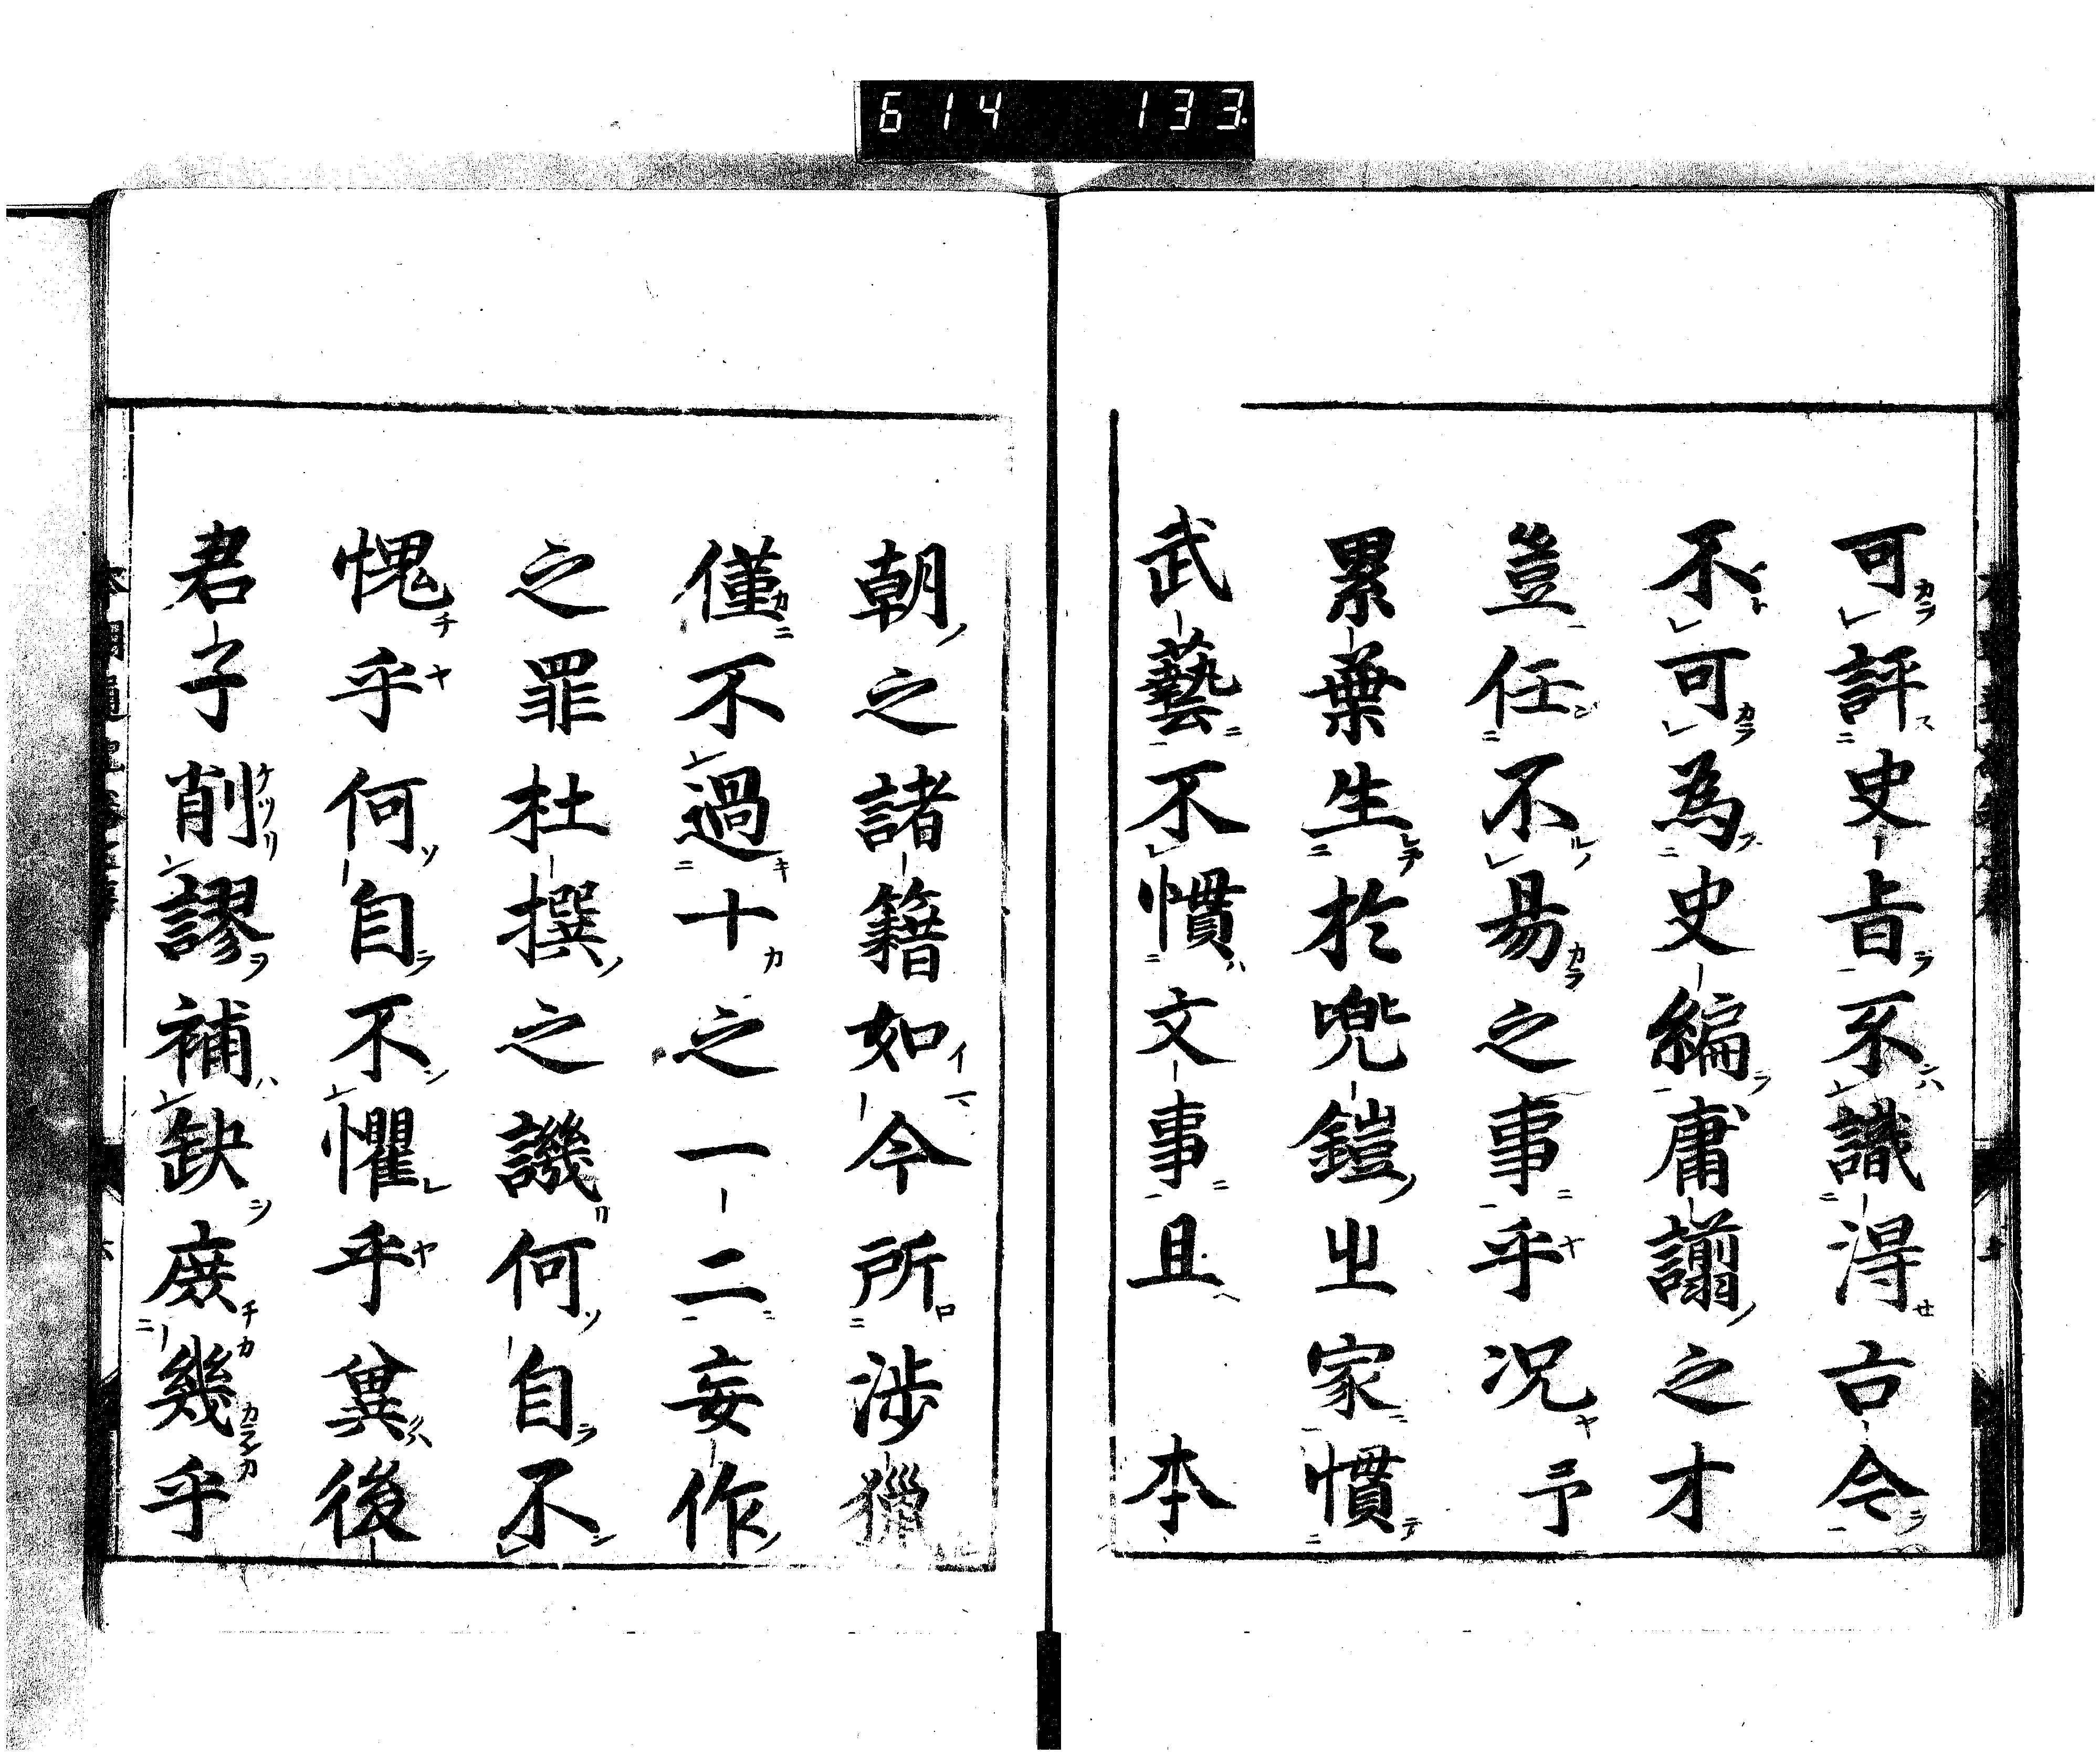 614 133
可評史㫖不識得古今
不可為史編庸謭之才
豈任不易之事乎况予
累葉生於兜鎧㞢家慣
武藝不慣文事且 本
朝之諸籍如今所渉獵
僅不過十之一二妄作
之罪杜撰之譏何自不
愧乎何自不懼乎冀後
君子削謬補缺庶幾乎